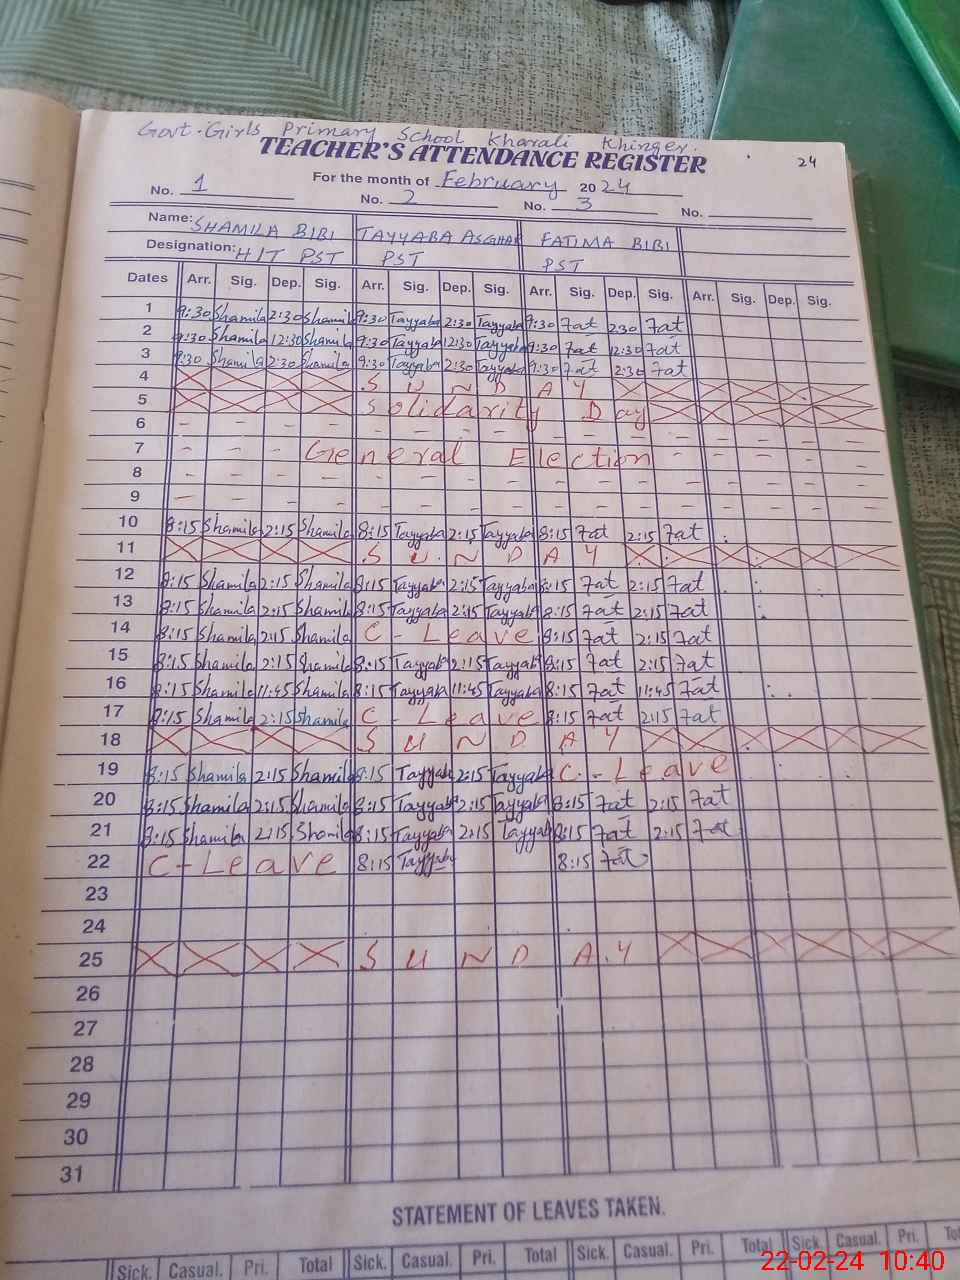 Govt. Girls Primary School Kharali Khinger.
TEACHER'S ATTENDANCE REGISTER 24
For the month of February 2024
No. 1 No. 2 No. 3 No.
Name: SHAMILA BIBI TAYYABA ASGHAR FATIMA BIBI
Designation: PST PST PST
Dates Arr. Sig. Dep. Sig. Arr. Sig. Dep. Sig. Arr. Sig. Dep. Sig. Arr. Sig. Dep. Sig.
1 9:30 Shamila 2:30 Shamila 9:30 Tayyaba 2:30 Tayyaba 9:30 Fat 2:30 Fat
2 9:30 Shamila 12:30 Shamila 9:30 Tayyaba 12:30 Tayyaba 9:30 Fat 12:30 Fat
3 9:30 Shamila 2:30 Shamila 9:30 Tayyaba 2:30 Tayyaba 9:30 Fat 2:30 Fat
4 SUNDAY
5 Solidarity Day
6 - - - - - - - - - - - -
7 - - - General Election - - - - - -
8 - - - - - - - - - - - -
9 - - - - - - - - - - - -
10 8:15 Shamila 2:15 Shamila 8:15 Tayyaba 2:15 Tayyaba 8:15 Fat 2:15 Fat
11 SUNDAY
12 8:15 Shamila 2:15 Shamila 8:15 Tayyaba 2:15 Tayyaba 8:15 Fat 2:15 Fat
13 8:15 Shamila 2:15 Shamila 8:15 Tayyaba 2:15 Tayyaba 8:15 Fat 2:15 Fat
14 8:15 Shamila 2:15 Shamila C-Leave 8:15 Fat 2:15 Fat
15 8:15 Shamila 2:15 Shamila 8:15 Tayyaba 2:15 Tayyaba 8:15 Fat 2:15 Fat
16 8:15 Shamila 11:45 Shamila 8:15 Tayyaba 11:45 Tayyaba 8:15 Fat 11:45 Fat
17 8:15 Shamila 2:15 Shamila C-Leave 8:15 Fat 2:15 Fat
18 SUNDAY
19 8:15 Shamila 2:15 Shamila 8:15 Tayyaba 2:15 Tayyaba C-Leave
20 8:15 Shamila 2:15 Shamila 8:15 Tayyaba 2:15 Tayyaba 8:15 Fat 2:15 Fat
21 8:15 Shamila 2:15 Shamila 8:15 Tayyaba 2:15 Tayyaba 8:15 Fat 2:15 Fat
22 C-Leave 8:15 Tayyaba 8:15 Fat
23
24
25 SUNDAY
26
27
28
29
30
31
STATEMENT OF LEAVES TAKEN.
Sick. Casual. Pri. Total Sick. Casual. Pri. Total Sick. Casual. Pri. Total Sick. Casual. Pri.
22-02-24 10:40